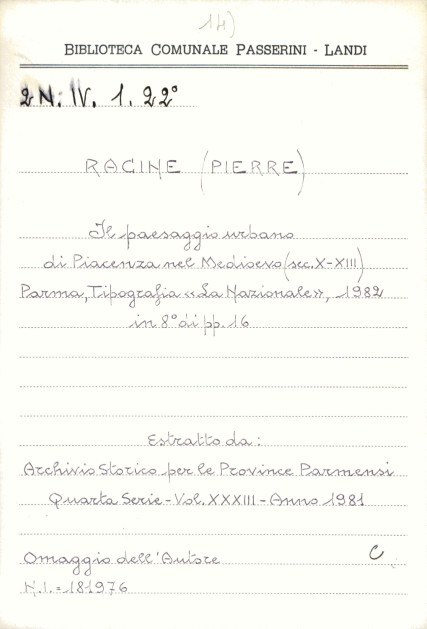 14)
BIBLIOTECA COMUNALE PASSERINI - LANDI
2N. IV. 1. 22°
RACINE (PIERRE)
Il paesaggio urbano
di Piacenza nel Medioevo (sec. X-XIII)
Parma, Tipografia «La Nazionale», 1982
in 8° di pp. 16
Estratto da:
Archivio Storico per le Province Parmensi
Quarta Serie - Vol. XXXIII - Anno 1981
Omaggio dell'Autore C
N.I. = 181976